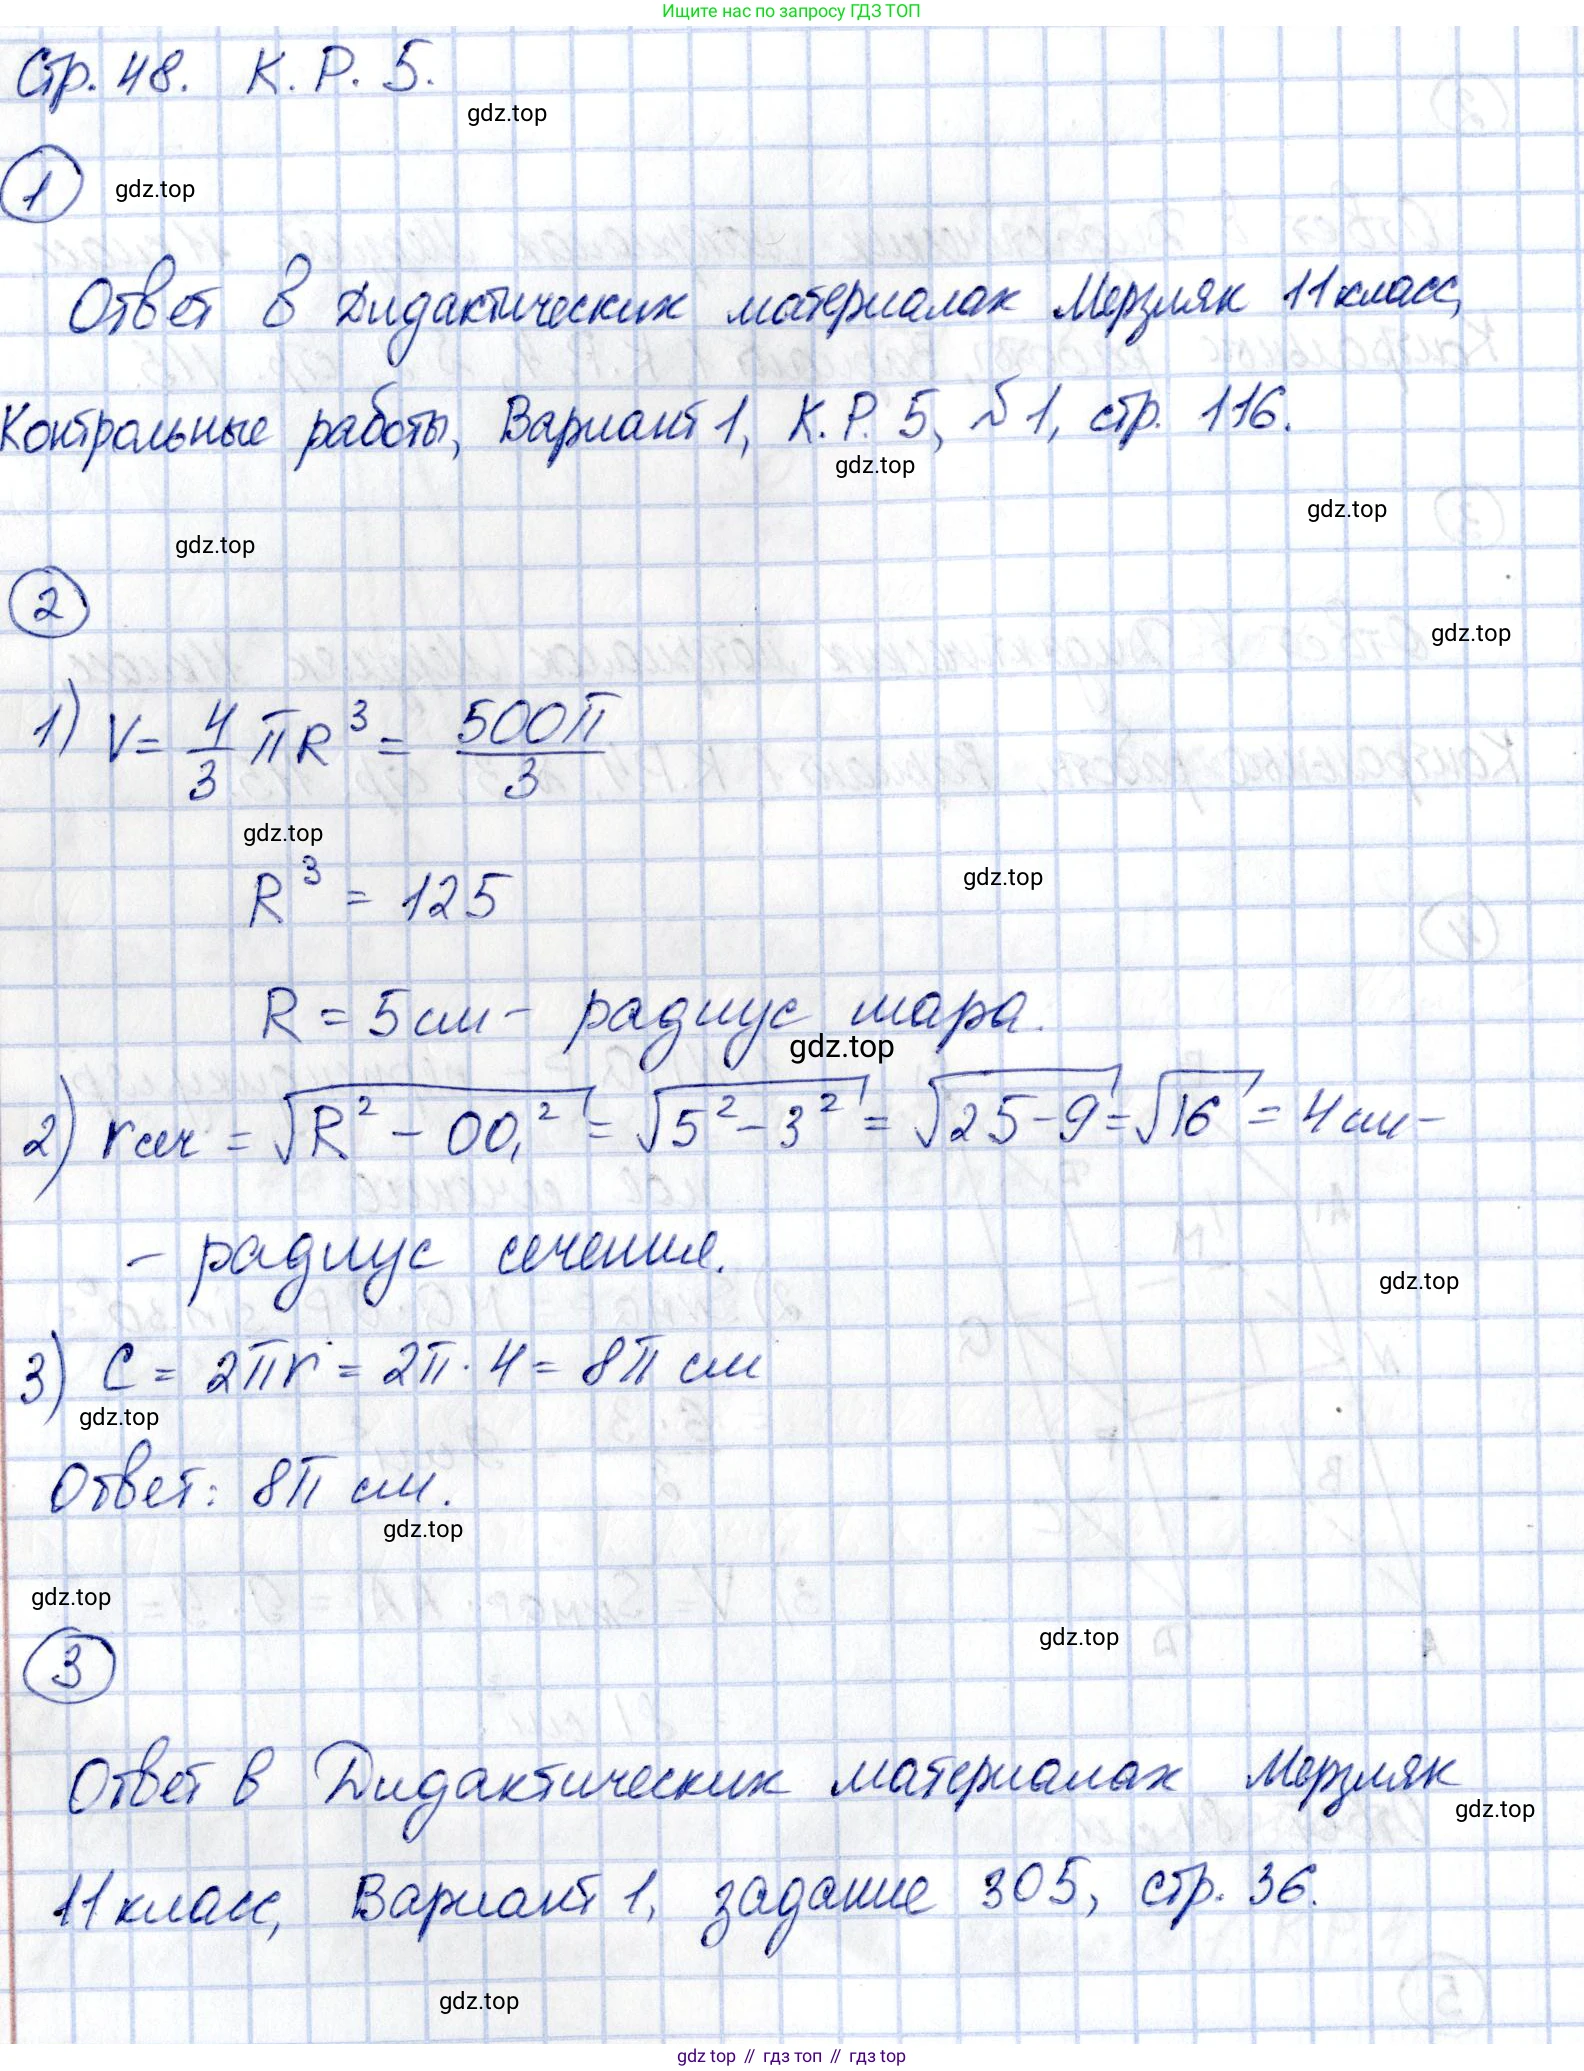 Ищите нас по запросу ГДЗ ТОП
Стр. 48. К. Р. 5.
gdz.top
1
gdz.top
Ответ в Дидактических материалах Мерзляк 11 класс,
Контрольные работы, Вариант 1, К. Р. 5, №1, стр. 116.
gdz.top
gdz.top
gdz.top
2
gdz.top
1) V = 4/3 πR³ = 500π/3
gdz.top
R³ = 125
gdz.top
R = 5 см - радиус шара.
gdz.top
2) rсеч = √(R² - OO₁²) = √(5² - 3²) = √(25 - 9) = √16 = 4 см -
- радиус сечения.
gdz.top
3) C = 2πr = 2π · 4 = 8π см
gdz.top
Ответ: 8π см.
gdz.top
gdz.top
3
gdz.top
Ответ в Дидактических материалах Мерзляк
gdz.top
11 класс, Вариант 1, задание 305, стр. 36.
gdz.top
gdz топ // гдз топ // гдз top